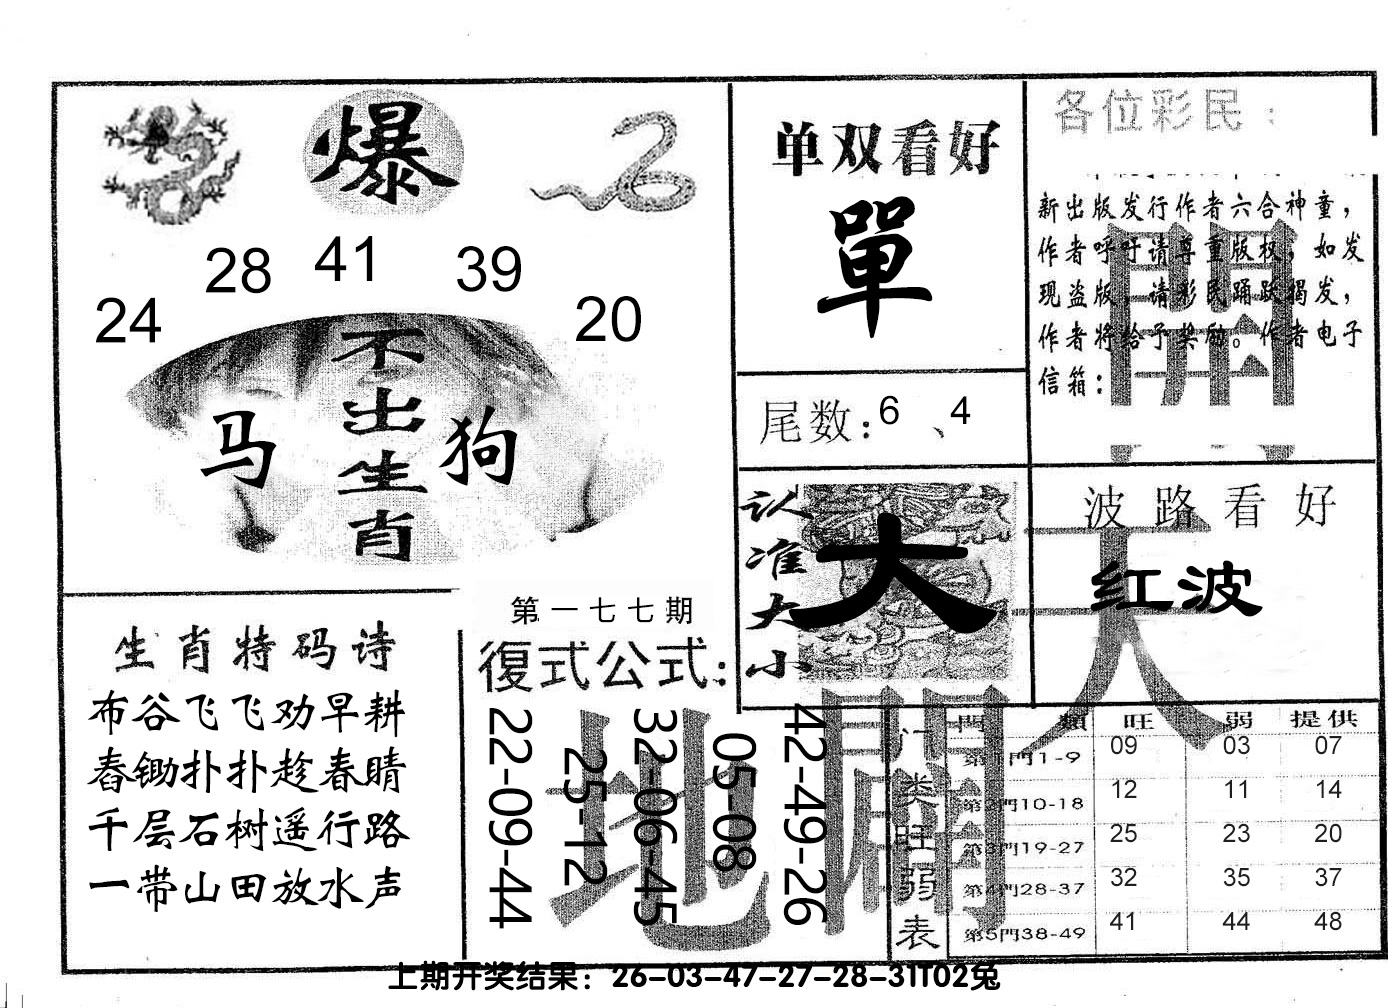 爆
24
28
41
39
20
不出生肖
马
狗
单双看好
單
尾数:6、4
各位彩民:
新出版发行作者六合神童，
作者呼吁请尊重版权，如发
现盗版，请彩民踊跃揭发，
作者将给予奖励。作者电子
信箱:
認准大小
大
波路看好
红波
生肖特码诗
布谷飞飞劝早耕
舂锄扑扑趁春睛
千层石树遥行路
一带山田放水声
第一七七期
復式公式:
22-09-44
25-12
32-06-45
05-08
42-49-26
天
地
開
闢
门类旺弱表
門類 旺 弱 提供
第1門1-9 09 03 07
第2門10-18 12 11 14
第3門19-27 25 23 20
第4門28-37 32 35 37
第5門38-49 41 44 48
上期开奖结果：26-03-47-27-28-31T02兔